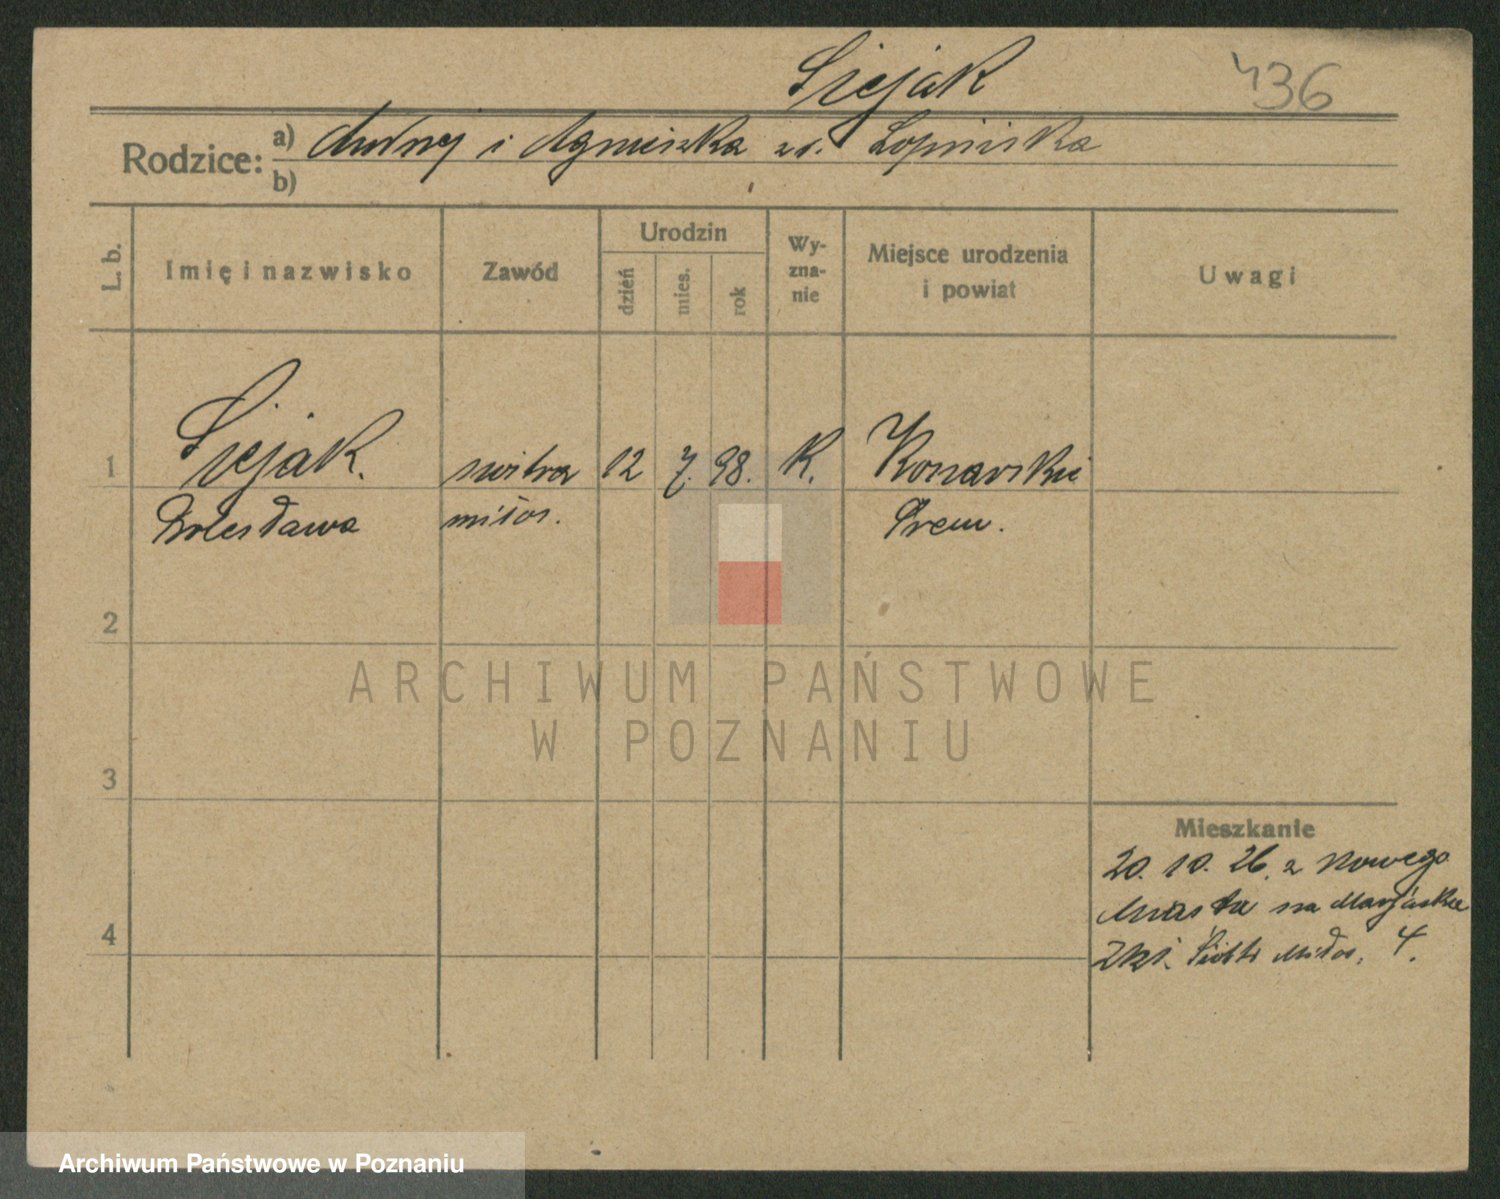 Siejak
436
Rodzice: a) Andrzej i Agnieszka zd.
b)
L. b.
Imię i nazwisko
Zawód
Urodzin
dzień
mies.
rok
Wy-
zna-
nie
Miejsce urodzenia
i powiat
Uwagi
1
Siejak. siostra 12 7. 98. K. Konarskie
Bolesława miłos. Śrem.
2
3
4
Mieszkanie
20. 10. 26. z Nowego
Miasta na
Sióstr Miłos. 4.
ARCHIWUM PAŃSTWOWE
W POZNANIU
Archiwum Państwowe w Poznaniu